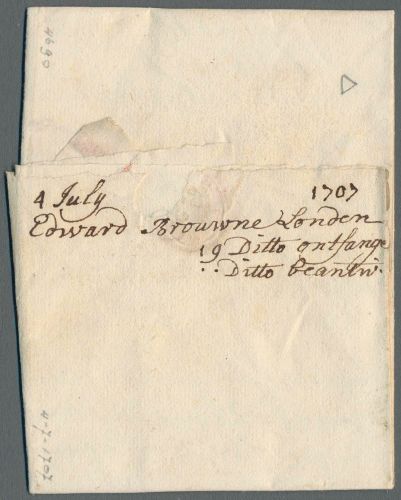 4690
4 July 1707
Edward Brouwne Londen
19 Ditto ontfange
" Ditto beantw.
4-7-1707